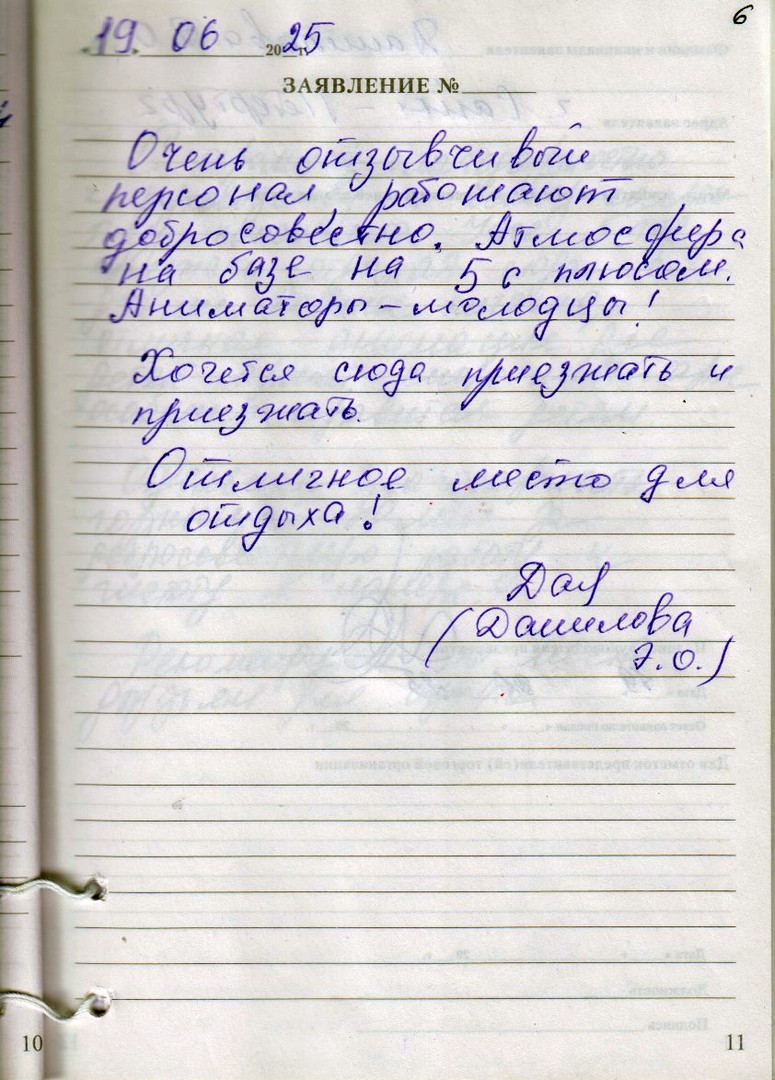 6
19 06 2025 г.
ЗАЯВЛЕНИЕ №
Очень отзывчивый
персонал, работают
добросовестно. Атмосфера
на базе на 5 с плюсом.
Аниматоры - молодцы!
Хочется сюда приезжать и
приезжать.
Отличное место для
отдыха!
(Данилова
Э.О.)
10
11